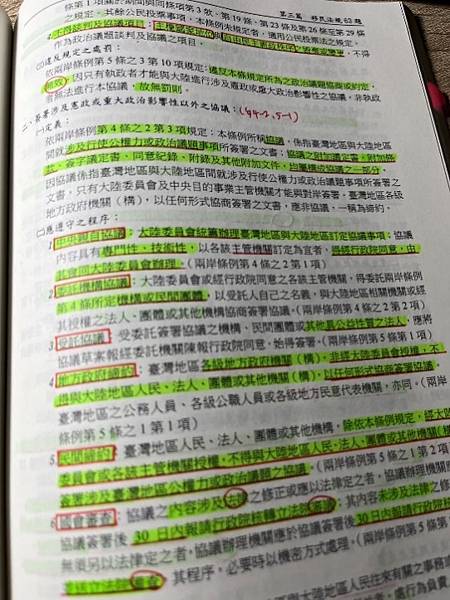 第三篇 移民法規 63 題
條第 1 項關於期間與同條項第 3 款、第 19 條、第 23 條及第 26 條至第 29 條
之規定,其餘公民投票事項,本條例未規定者,適用公民投票法之規定。
作為政治議題談判及協議之項目。
㈡違反規定之處罰:
依兩岸條例第 5 條之 3 第 10 項規定:違反本條規定所為之政治議題協商或約定,
無效。因只有執政者才能與大陸進行涉及憲政或重大政治影響性之協議,非執政
者無法進行本協議,故無罰則。
二、簽署涉及憲政或重大政治影響性以外之協議:(§4-2、5-1)
㈠定義:
依兩岸條例第 4 條之 2 第 3 項規定:本條例所稱協議,係指臺灣地區與大陸地區
間就涉及行使公權力或政治議題事項所簽署之文書;協議之附加議定書、附加條
款、簽字議定書、同意紀錄、附錄及其他附加文件,均屬構成協議之一部分。
因協議係指臺灣地區與大陸地區間就涉及行使公權力或政治議題事項所簽署之
文書,只有大陸委員會及中央目的事業主管機關才能與對岸簽署。臺灣地區各級
地方政府機關(構),以任何形式協商簽署之文書,應非協議,一稱為締約。
㈡應遵守之程序:
1. 中央親自協議:大陸委員會統籌辦理臺灣地區與大陸地區訂定協議事項;協議
內容具有專門性、技術性,以各該主管機關訂定為宜者,得經行政院同意,由
其會同大陸委員會辦理。(兩岸條例第 4 條之 2 第 1 項)
2. 委託機構協議:大陸委員會或經行政院同意之各該主管機關,得委託兩岸條例
第 4 條所定機構或民間團體,以受託人自己之名義,與大陸地區相關機關或經
其授權之法人、團體或其他機構協商簽署協議。(兩岸條例第 4 條之 2 第 2 項)
3. 受託協議:受委託簽署協議之機構、民間團體或其他具公益性質之法人,應將
協議草案報經委託機關陳報行政院同意,始得簽署。(兩岸條例第 5 條第 1 項)
4. 地方政府締約:臺灣地區各級地方政府機關(構),非經大陸委員會授權,不
得與大陸地區人民、法人、團體或其他機關(構),以任何形式協商簽署協議。
臺灣地區之公務人員、各級公職人員或各級地方民意代表機關,亦同。(兩岸
條例第 5 條之 1 第 1 項)
5. 民間締約:臺灣地區人民、法人、團體或其他機構,除依本條例規定,經大陸
委員會或各該主管機關授權,不得與大陸地區人民、法人、團體或其他機關(構)
簽署涉及臺灣地區公權力或政治議題之協議。(兩岸條例第 5 條之 1 第 2 項)
6. 國會審查:協議之內容涉及法律之修正或應以法律定之者,協議辦理機關應於
協議簽署後 30 日內報請行政院核轉立法院審議;其內容未涉及法律之修正或
無須另以法律定之者,協議辦理機關應於協議簽署後 30 日內報請行政院
送立法院備查,其程序,必要時以機密方式處理。(兩岸條例第 5 條第